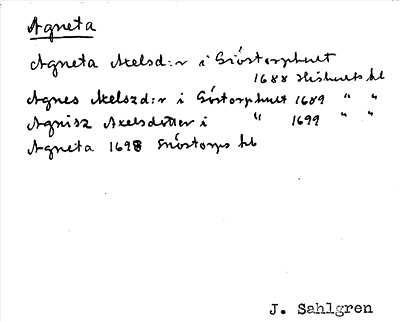 Agneta
Agneta Axelsd:r i Gióstorphult
1688 Hishults hl
Agnes Axelszd:r i Góstorphult 1689 " "
Agnisz Axelsdotter i " 1699 " "
Agneta 1698 hl
J. Sahlgren